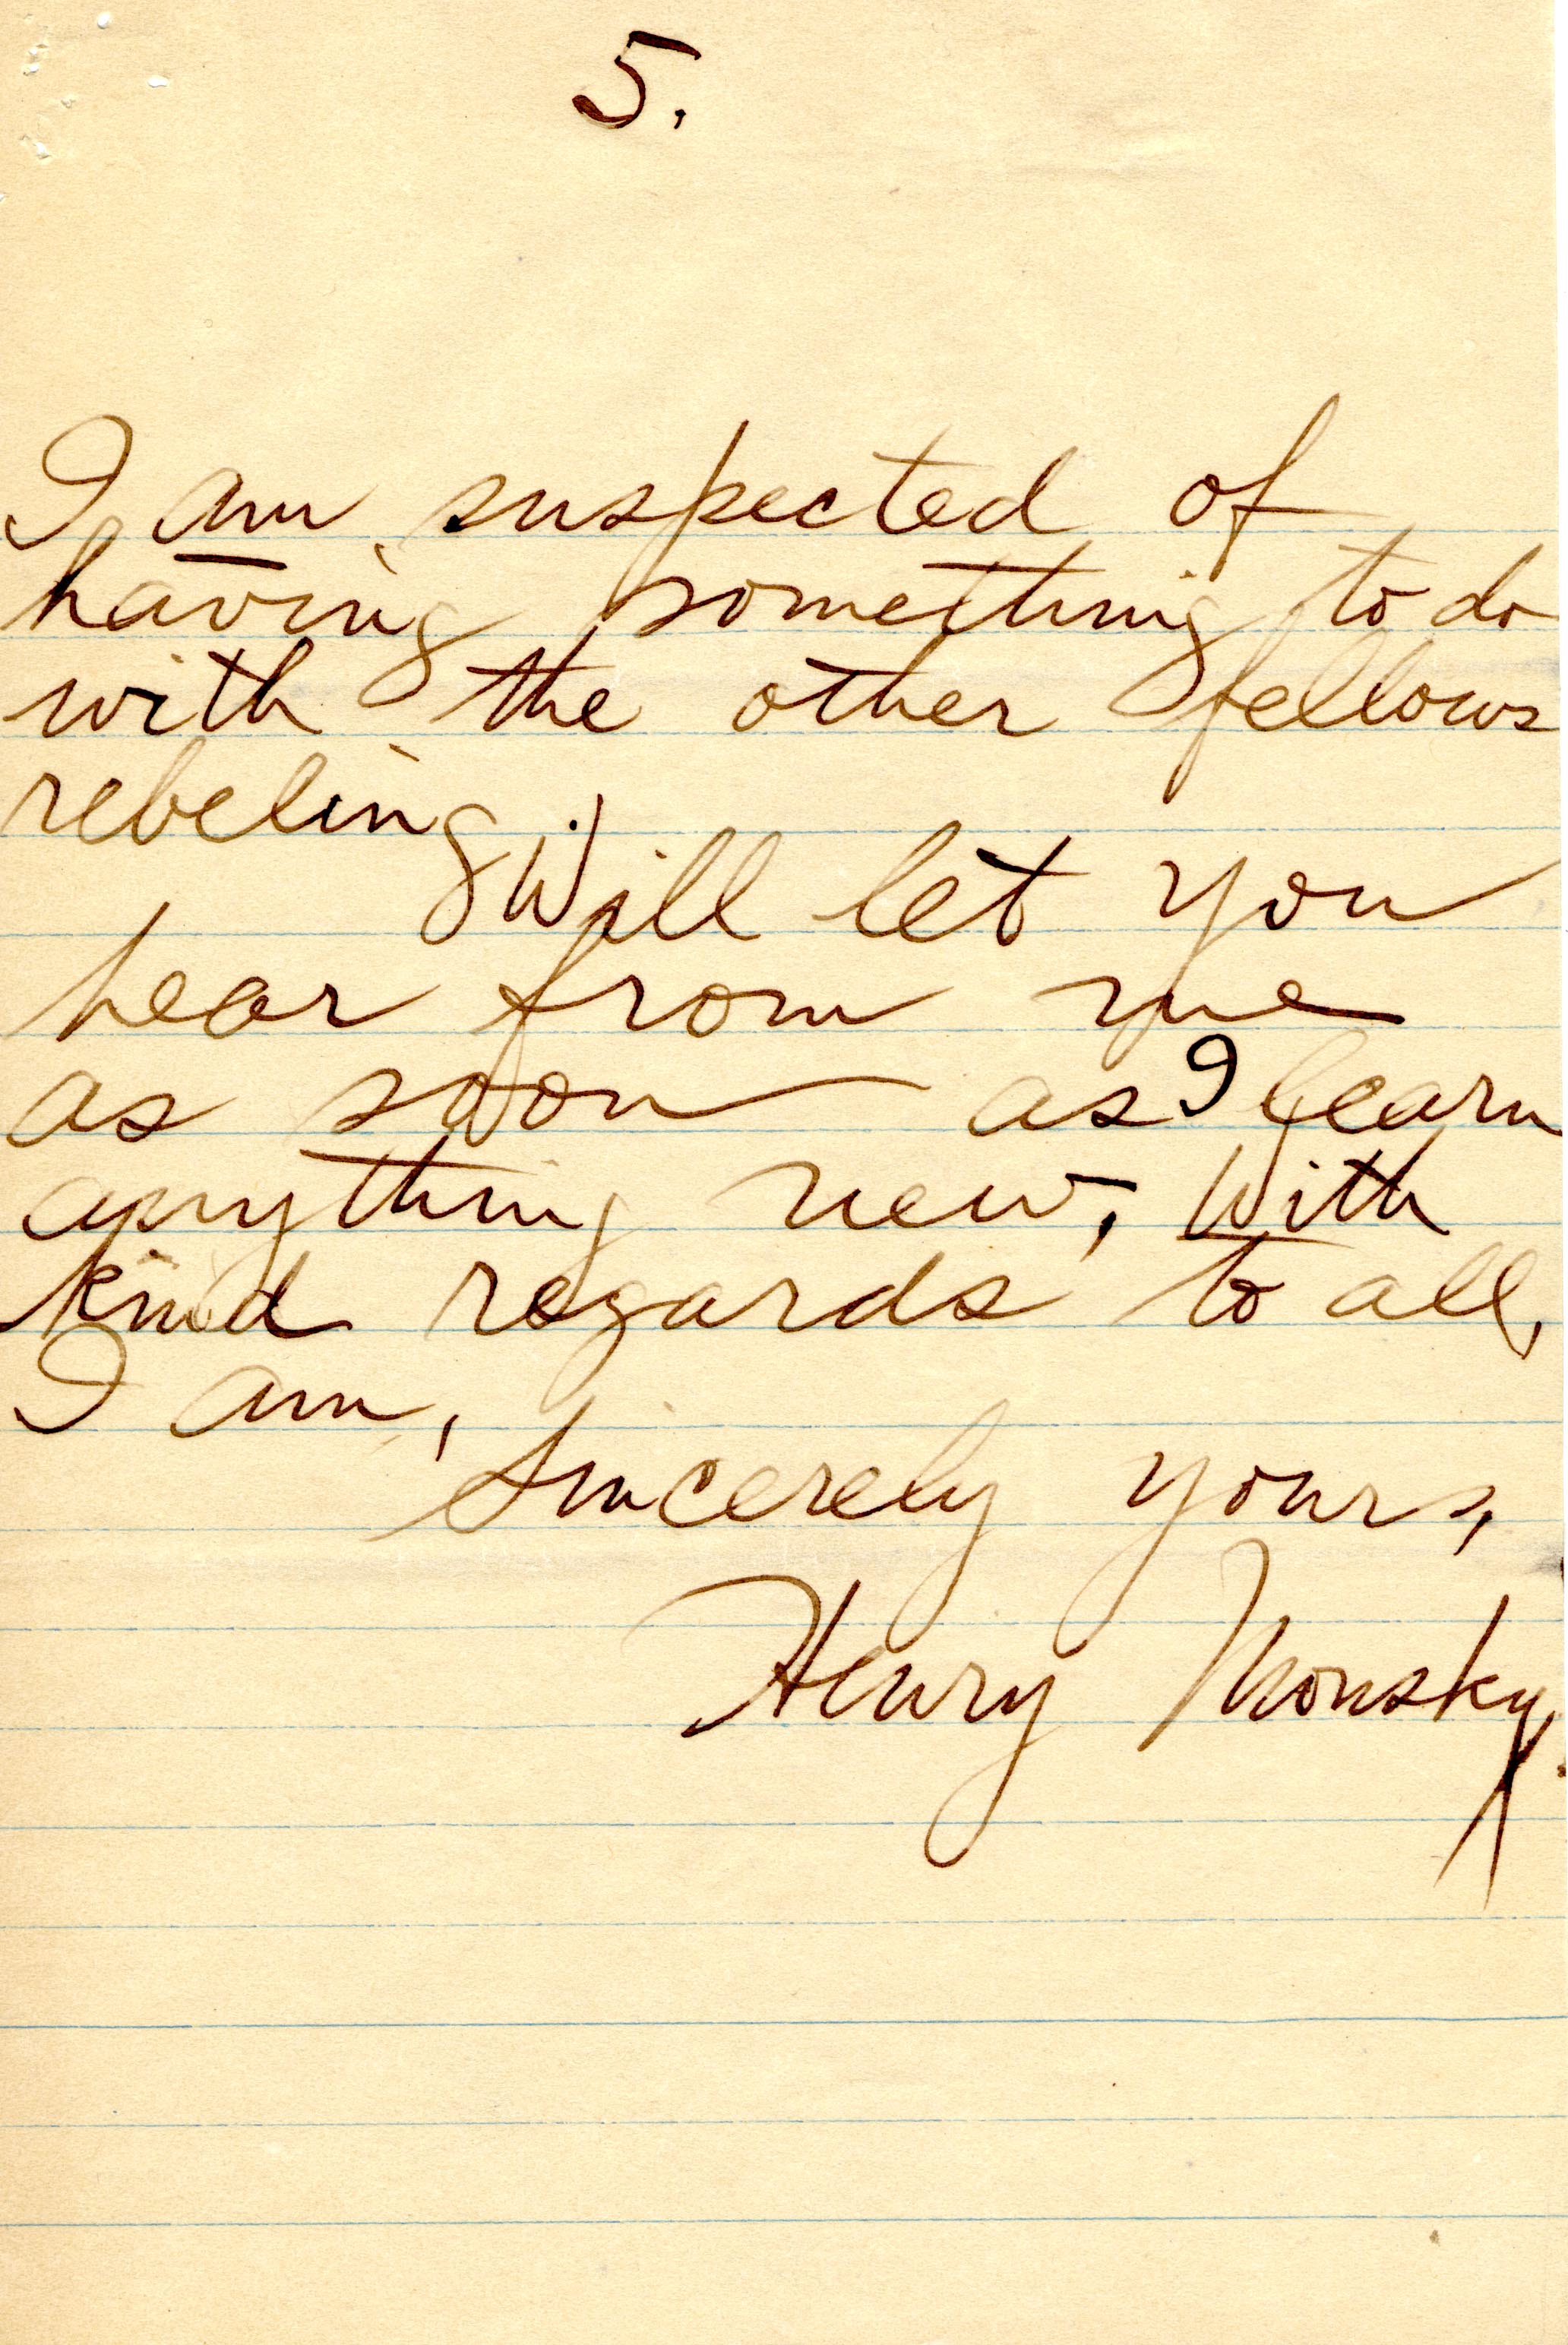 5.
I am suspected of
having something to do
with the other fellows
rebeling
Will let you
hear from me
as soon as I learn
anything new, With
kind regards to all,
I am,
Sincerely yours,
Henry Monsky.